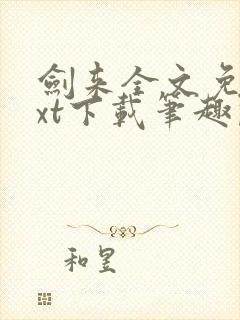 劍来全文免
xt下載筆趣
和昱